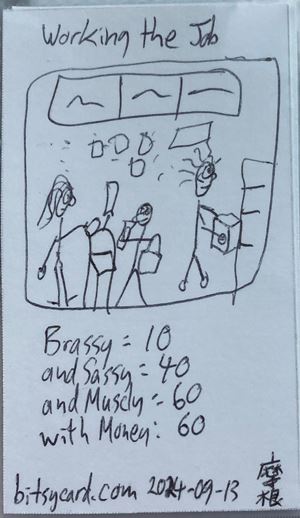 Working the Job
Brassy = 10
and Sassy = 40
and Muscly = 60
with Money: 60
bitsycard.com 2024-09-13
摩根